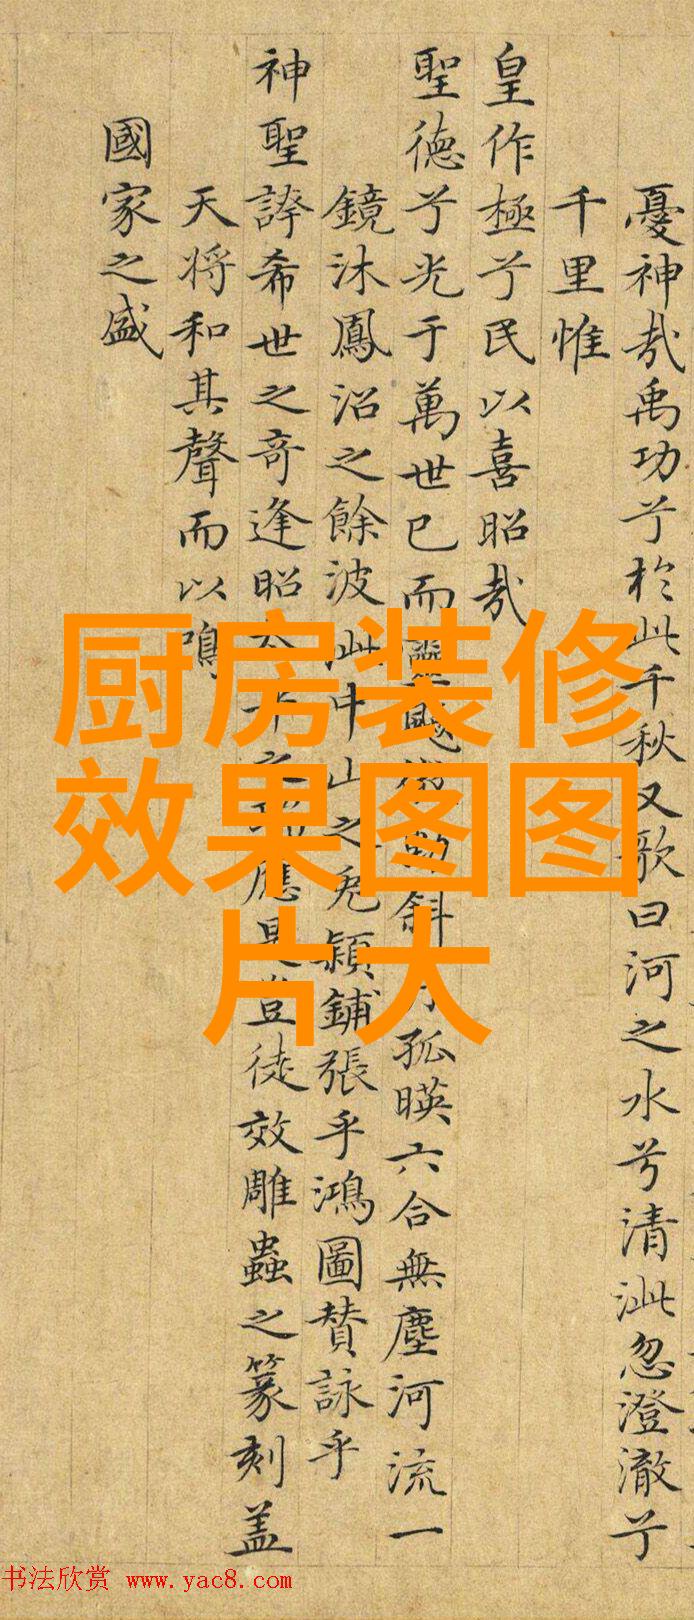 憂神哉禹功兮於此千秋又歌曰河之水兮清泚忽澄澈兮
千里惟
皇作極兮民以喜昭哉
聖德兮光于萬世已而靈飈斜孤暎六合無塵河流一
鏡沐鳳沼之餘波泚中山之兔穎鋪張乎鴻圖賛詠乎
神聖誇希世之奇逢昭應是豈徒效雕蟲之篆刻盖
天将和其聲而以鳴
國家之盛
厨房装修
效果图图
片大
书法欣赏 www.yac8.com